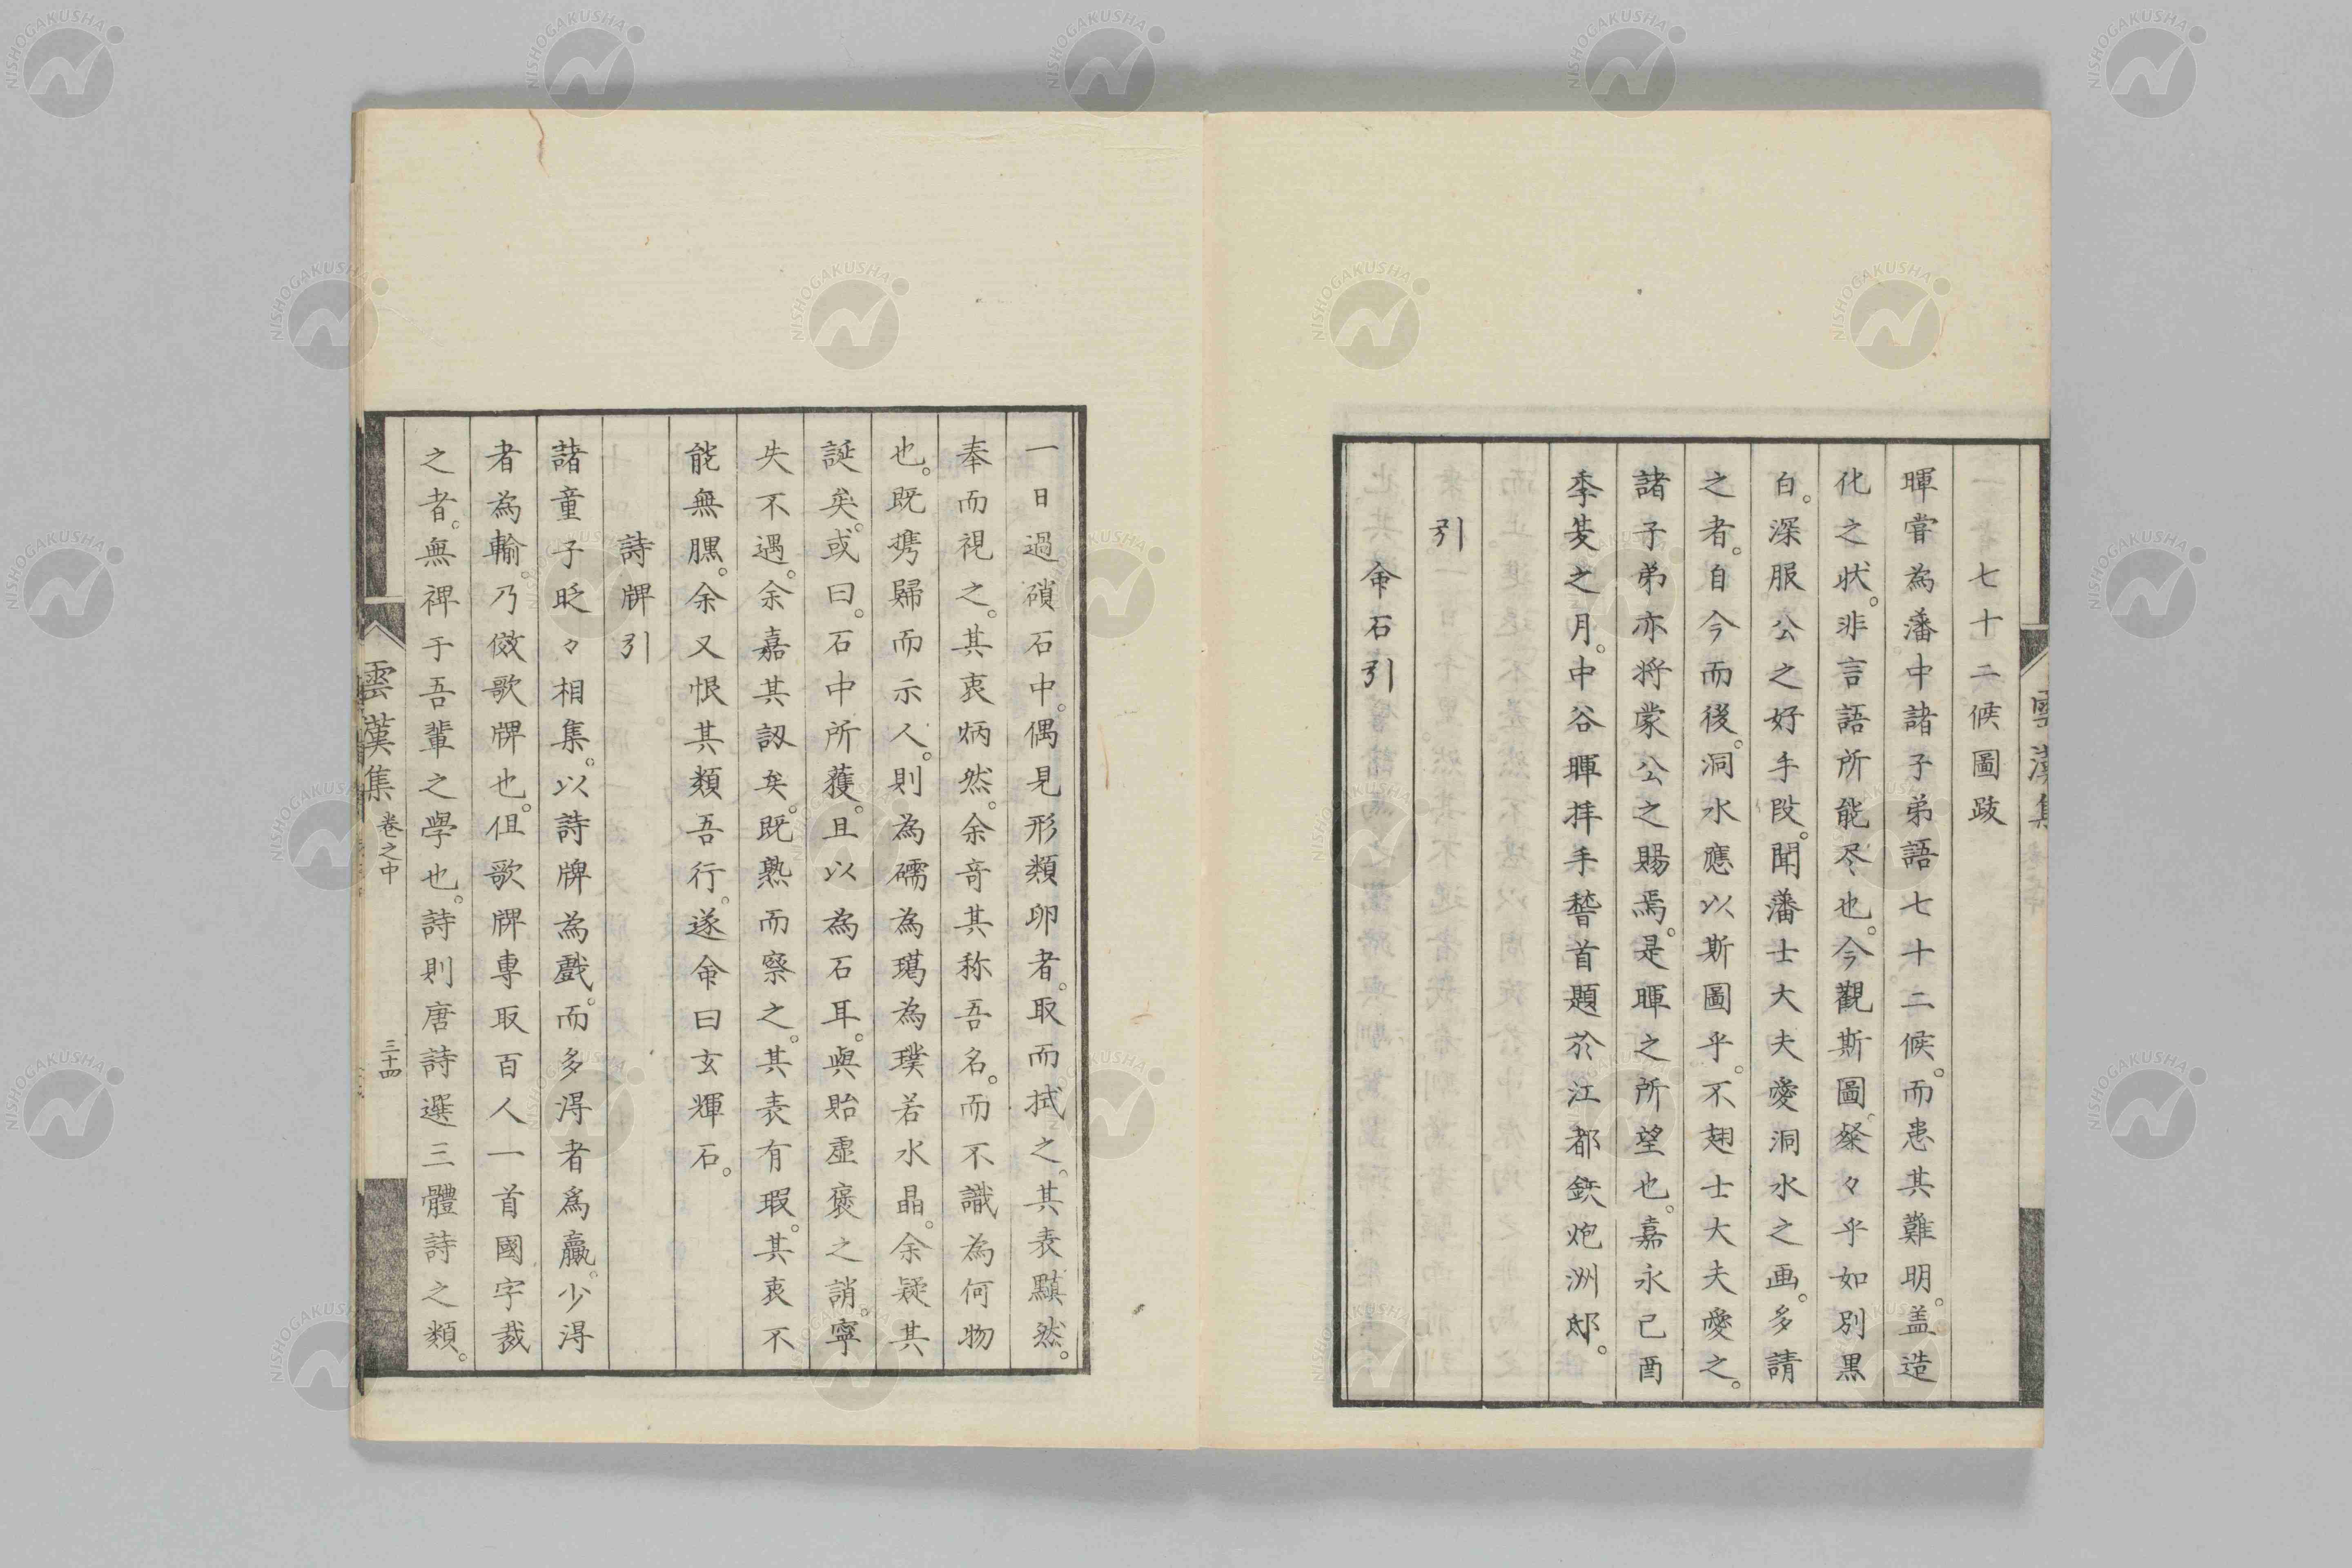 七十二候圖跋
暉嘗為潘中諸子弟語七十二候。而患其難明。盖造
化之狀。非言語所能尽也。今觀斯圖。粲々乎如別黒
白。深服公之好手段。聞潘士大夫愛洞水之画。多請
之者。自今而後。洞水應以斯圖乎。不翅士大夫愛之。
諸子弟亦将蒙公之賜焉。是暉之所望也。嘉永己酉
季芰之月。中谷暉拝手𥡴首題於江都鉄炮洲邸。
引
命石引
雲漢集
一日過磧石中。偶見形類卵者。取而拭之。其表黰然。
奉而視之。其衷炳然。余竒其称吾名。而不識為何物
也。既携歸而示人。則為礝為璑為璞若水晶。余疑其
誕矣。或曰。石中所獲。且以為石耳。與貽虛褒之誚。寧
失不遇。余嘉其訒矣。既熟而察之。其表有瑕。其衷不
能無䐶。余又恨其類吾行。遂命曰玄輝石。
詩牌引
諸童子眨々相集。以詩牌為戲。而多淂者爲贏。少淂
者為輸。乃傚歌牌也。但歌牌專取百人一首國字裁
之者。無裨于吾輩之學也。詩則唐詩選三體詩之類。
雲漢集 卷之中 三十四
NISHOGAKUSHA